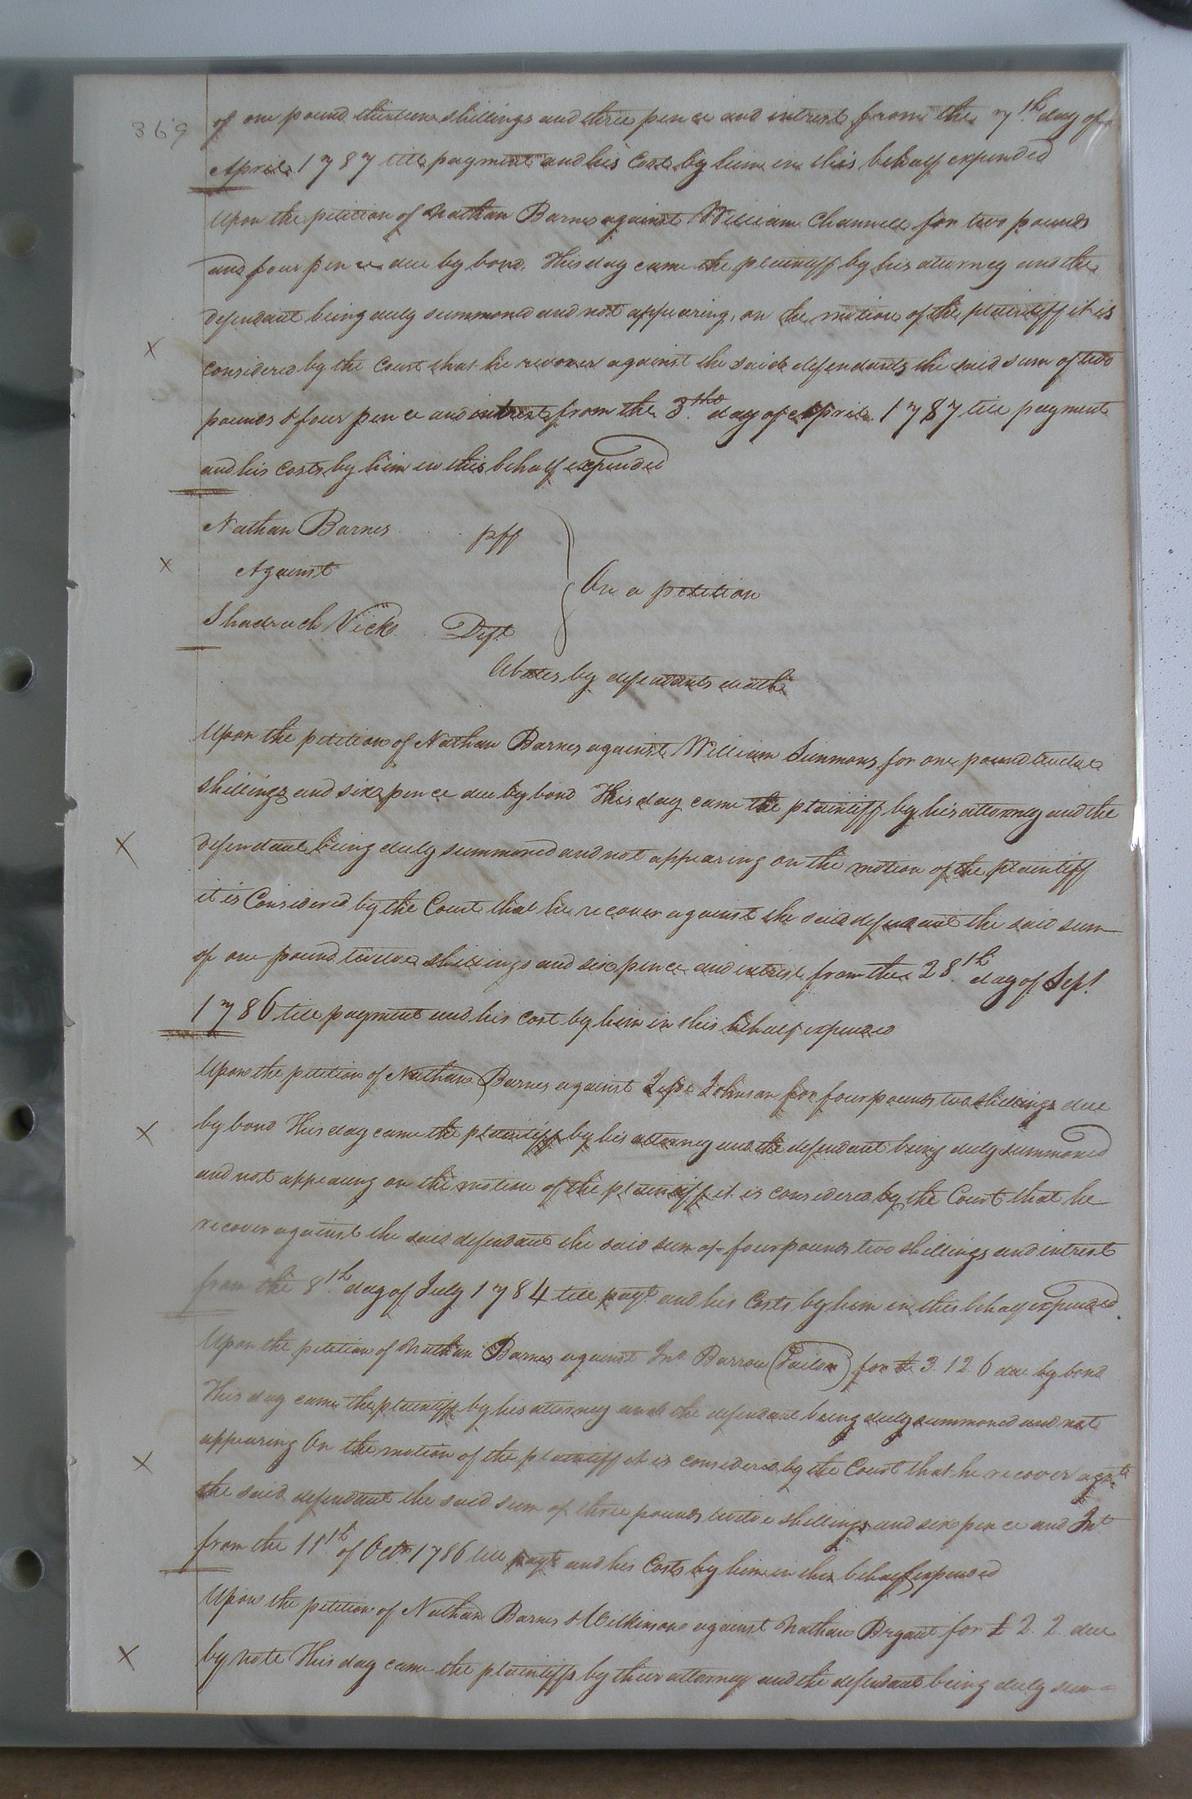 369
of one pound thirteen shillings and three pence and intrest from the 7th. day of
April 1787 till payment and his Cost by him in this behalf expended
Upon the petition of Nathan Barnes against William Channell for two pounds
and four pence due by bond. This day came the plaintiff by his attorney and the
defendant being duly summoned and not appearing, on the motion of the plaintiff it is
considered by the Court that he recover against the said defendant the said sum of two
pounds & four pence and intrest from the 3. day of April 1787 till payment
and his costs by him in this behalf expended
Nathan Barnes plff
Against
On a petition
Shadrach Vick Deft
Abates by defendants death
Upon the petition of Nathan Barnes against William Summons for one pound twelve
shillings and six pence due by bond This day came the plaintiff by his attorney and the
defendant being duly summoned and not appearing on the motion of the plaintiff
it is Considered by the Court that he recover against the said defendant the said sum
of one pound twelve shillings and six pence and intrest from the 28th. day of Sept
1786 till payment and his cost by him in this behalf expended
Upon the petition of Nathan Barnes against Johnson for four pounds two shillings due
by bond This day came the plaintiff by his attorney and the defendant being duly summoned
and not appearing on the motion of the plaintiff it is considered by the Court that he
recover against the said defendant the said sum of four pounds two shillings and intrest
from the 8th. day of July 1784 till payt and his Costs by him in this behalf expended.
Upon the petition of Nathan Barnes against Jno. Barrow (Tailor) for £3.12 6 due by bond
This day came the plaintiff by his attorney and the defendant being duly summoned and not
appearing On the motion of the plaintiff it is considered by the Court that he recover agst
the said defendant the said sum of three pounds twelve shillings and six pence and Int
from the 11th of Octr. 1786 till payt and his Costs by him in this behalf expended
Upon the petition of Nathan Barnes & Wilkinson against Nathan Bryant for £2.2 due
by note This day came the plaintiffs by their attorney and the defendant being duly sum=